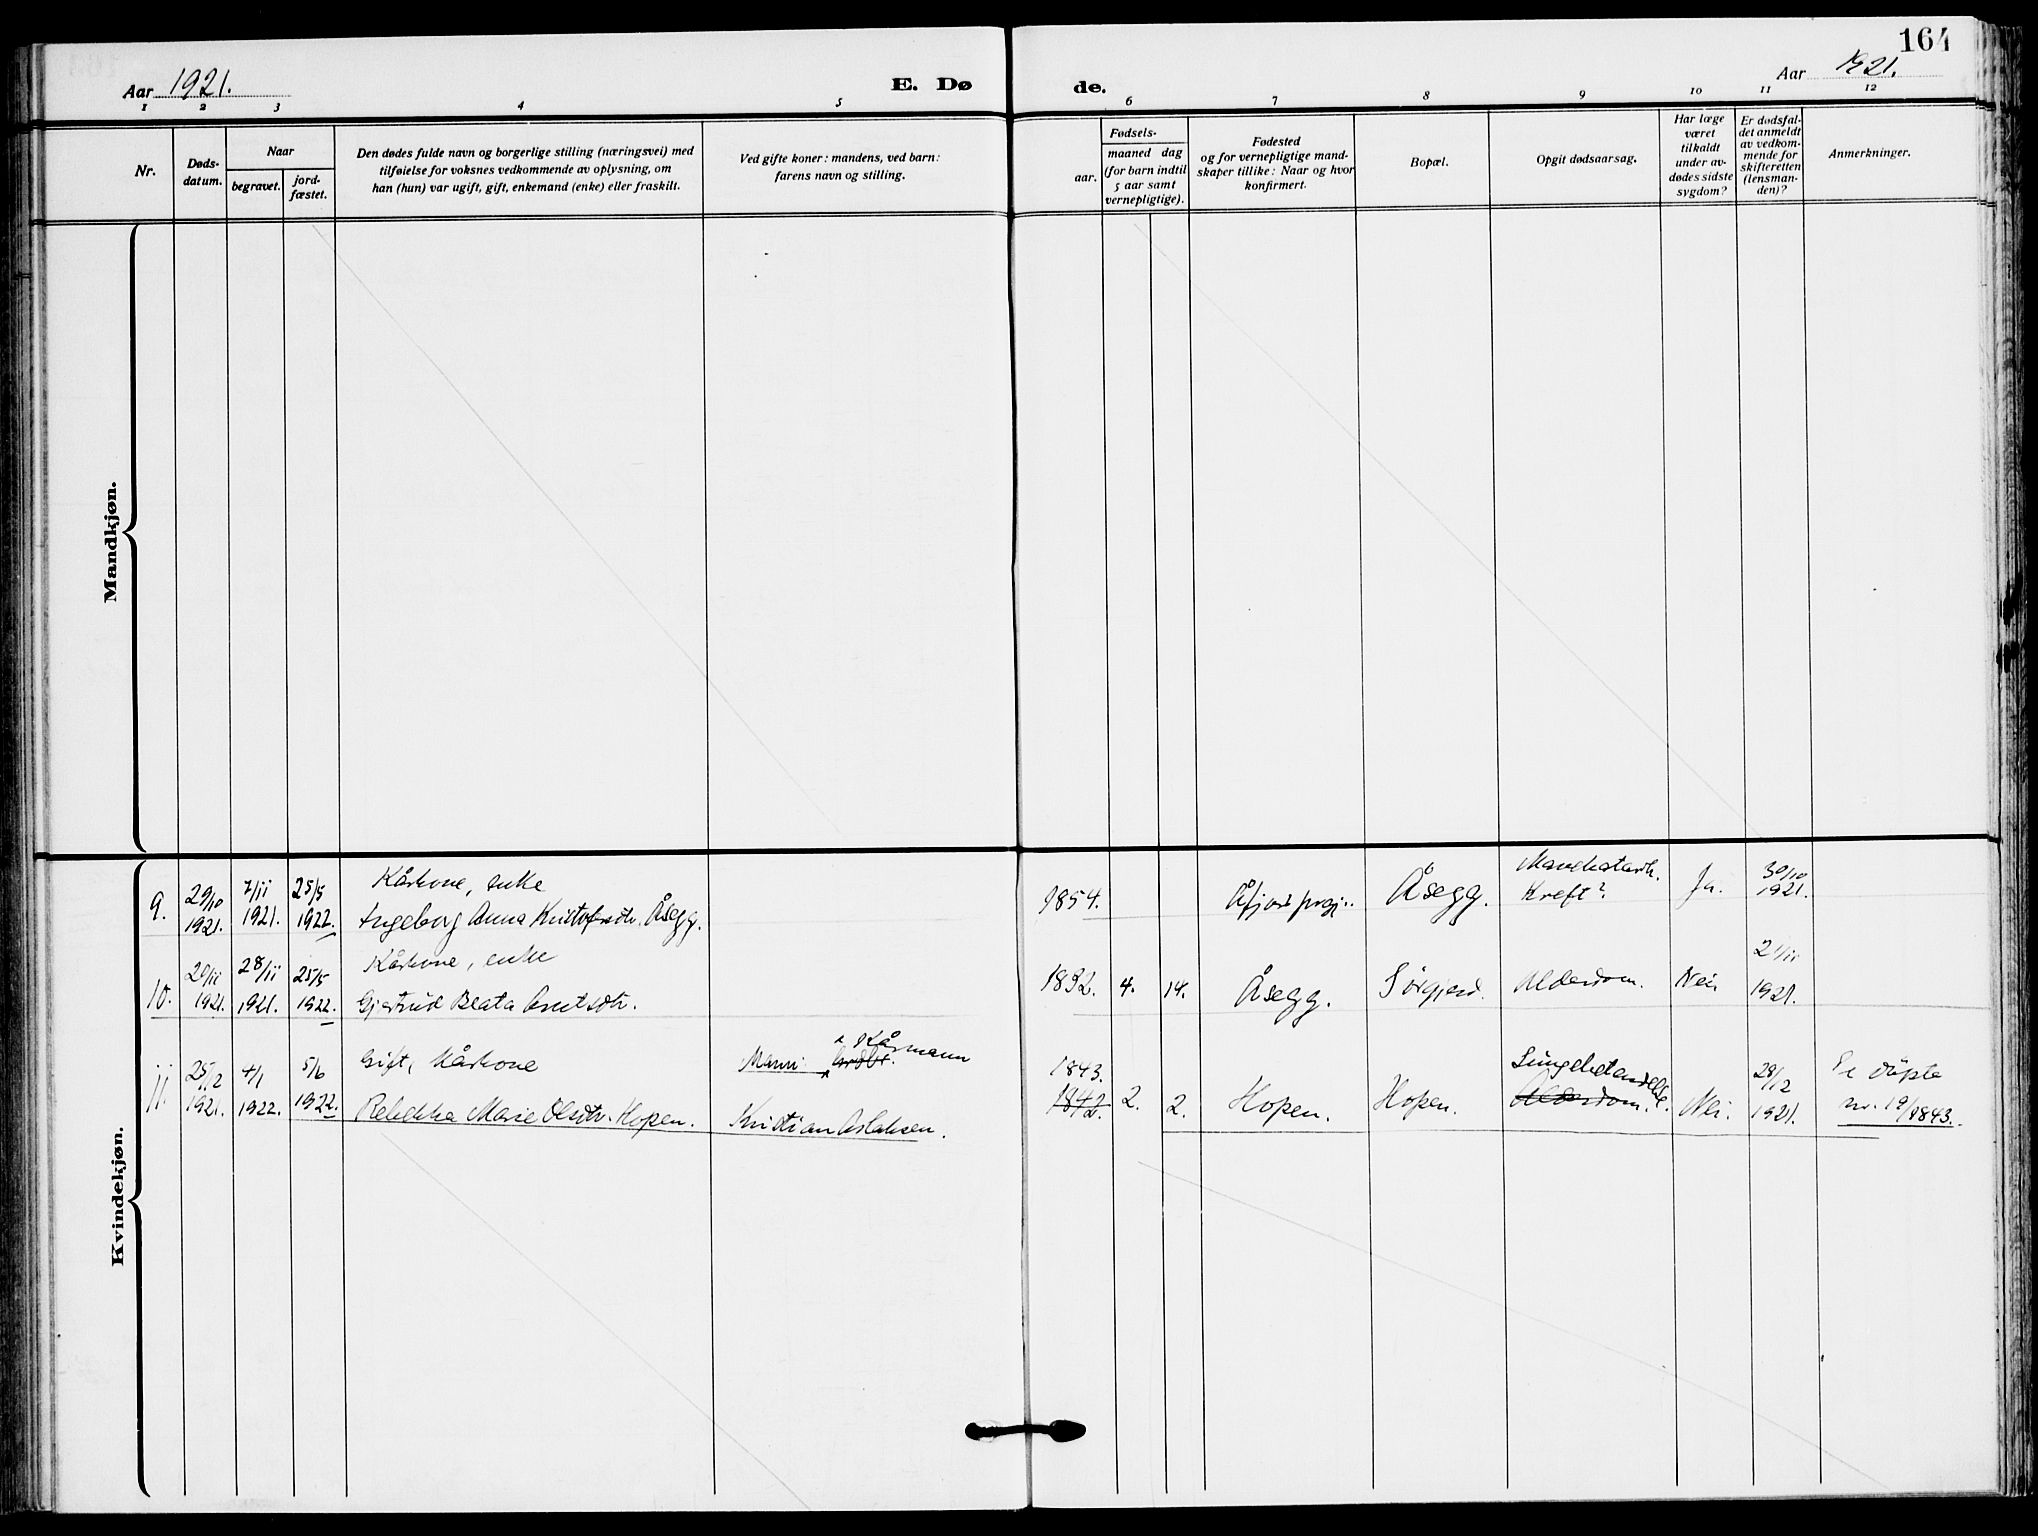 164
Aar 1921.
E. Dø
de.
Aar 1921.
1 2 3 4 5 6 7 8 9 10 11 12
Nr.
Døds-
datum.
Naar
begravet.
jord-
fæstet.
Den dødes fulde navn og borgerlige stilling (næringsvei) med
tilføielse for voksnes vedkommende av oplysning, om
han (hun) var ugift, gift, enkemand (enke) eller fraskilt.
Ved gifte koner: mandens, ved barn:
farens navn og stilling.
Fødsels-
aar.
maaned dag
(for barn indtil
5 aar samt
vernepligtige).
Fødested
og for vernepligtige mand-
skaper tillike: Naar og hvor
konfirmert.
Bopæl.
Opgit dødsaarsag.
Har læge
været
tilkaldt
under av-
dødes sidste
sygdom?
Er dødsfal-
det anmeldt
av vedkom-
mende for
skifteretten
(lensman-
den)?
Anmerkninger.
Mandkjøn.
Kvindekjøn.
9.
29/10
1921.
7/11
1921.
25/5
1922.
Kårkone, enke
Ingeborg Anna Kristofersdtr. Åsegg.
1854.
Åfjord prgj.
Åsegg.
Kreft?
Ja.
30/10
1921.
10.
20/11
1921
28/11
1921.
25/5
1922.
Kårkone, enke
Gjertrud Beata Knutsdtr.
1832.
4.
14.
Åsegg.
Sørgjerd.
Alderdom.
Nei.
21/11
1921.
11.
25/12
1921.
4/1
1922.
5/6
1922.
Gift, Kårkone
Rebekka Marie Olsdtr. Hopen.
Mann: Kårmann
Kristian Aslaksen.
1843.
1842.
2.
2.
Hopen.
Hopen.
Lungebetendelse.
Alderdom.
Nei.
28/12
1921.
Se döpte
nr. 19/1843.